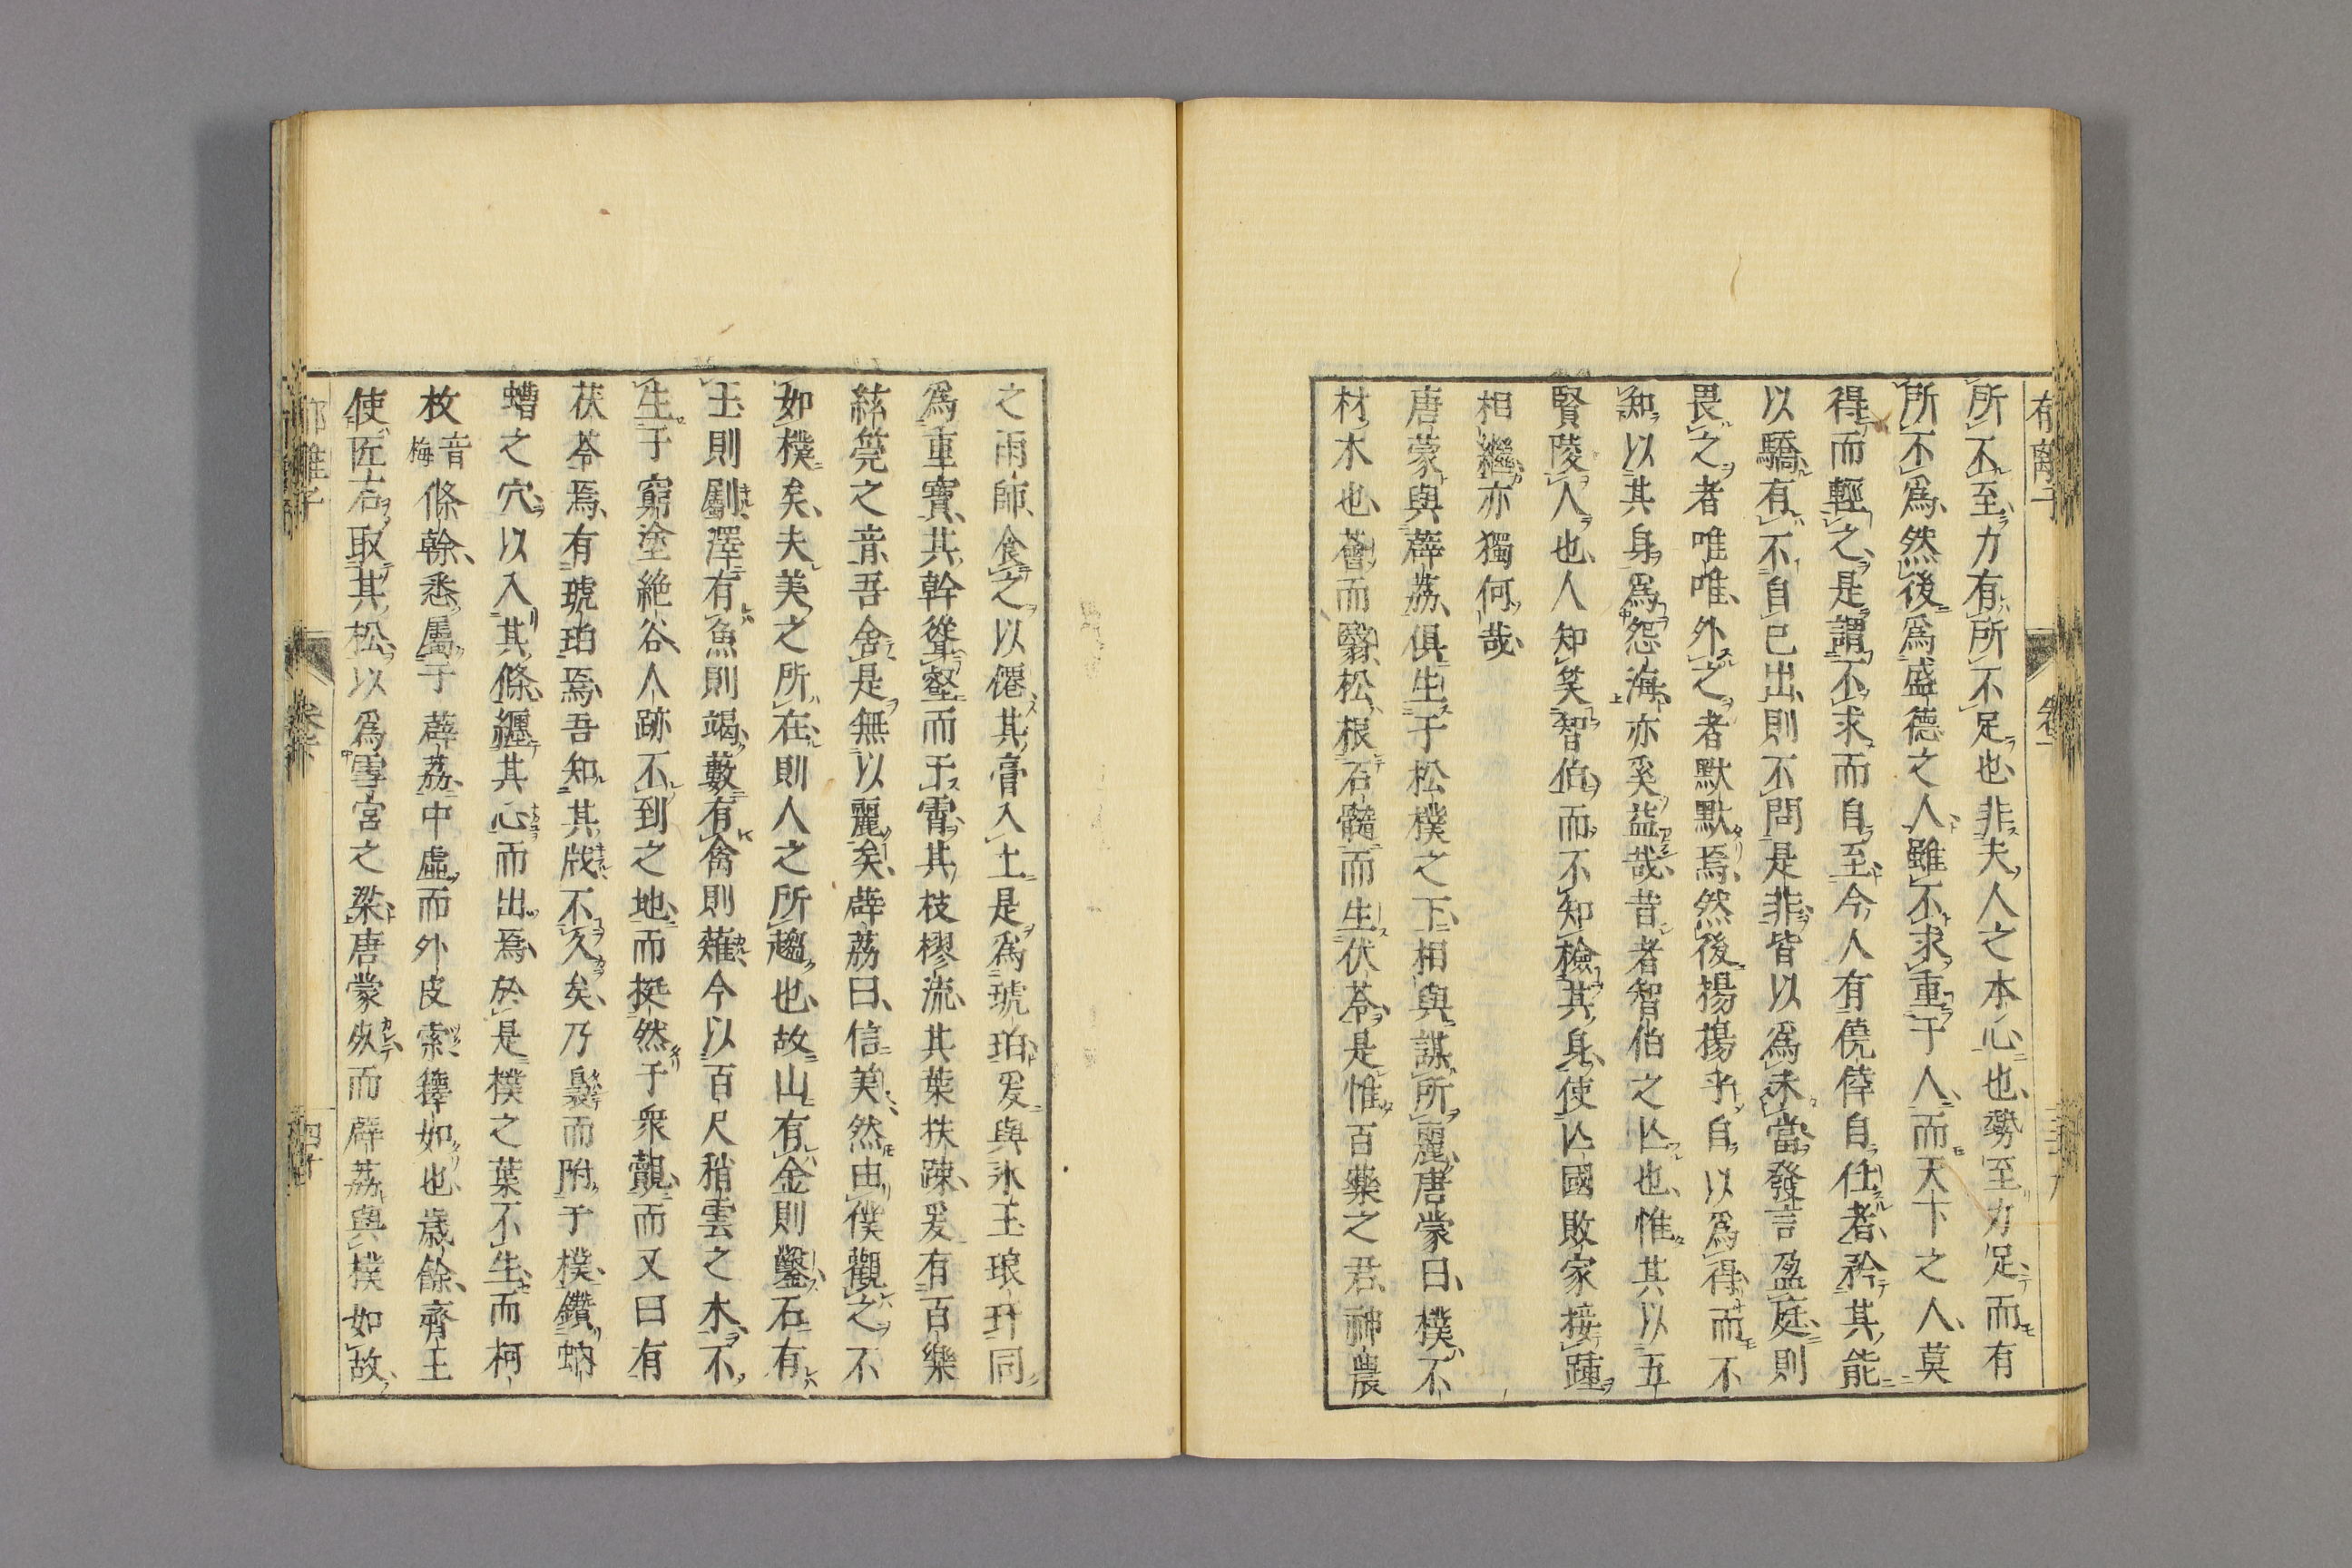 所不至力有所不足也非夫人之本心也勢至力足而有
所不爲然後爲盛德之人雖不求重于人而天下之人莫
得而輕之是謂不求而自至今人有僥倖自仕者矜其能
以驕有不自已出則不問是非皆以爲未當發言盈庭則
畏之者唯唯外之者默默焉然後揚揚乎自以爲得而不
知以其身爲怨海亦奚益哉昔者智伯之亾也惟其以五
賢陵人也人知笑智伯而不知檢其身使亾國敗家接踵
相繼亦獨何哉
唐蒙與薜荔俱生于松樸之下相與謀所麗唐蒙曰樸不
材木也薈而翳松根石髓而生伏苓是惟百藥之君神農
之雨師食之以僊其膏入土是爲琥珀爰與氷玉琅玕同
爲重寶其幹聳壑而干霄其枝樛流其葉扶疎爰有百樂
絃筦之音吾舍是無以麗矣薜荔曰信美然由僕觀之不
如樸矣夫美之所在則人之所趨也故山有金則鑿石有
玉則劚澤有魚則竭藪有禽則薙今以百尺稍雲之木不
生于窮塗絶谷人跡不到之地而挺然于衆覿而又曰有
茯苓焉有琥珀焉吾知其戕不久矣乃裊而附于樸鑽蚋
螬之穴以入其條纒其心而出焉於是樸之葉不生而柯
枚音梅條幹悉屬于薜荔中虛而外皮索籜如也歳餘齊王
使匠石取其松以爲雪宮之梁唐蒙㱡而薜荔與樸如故